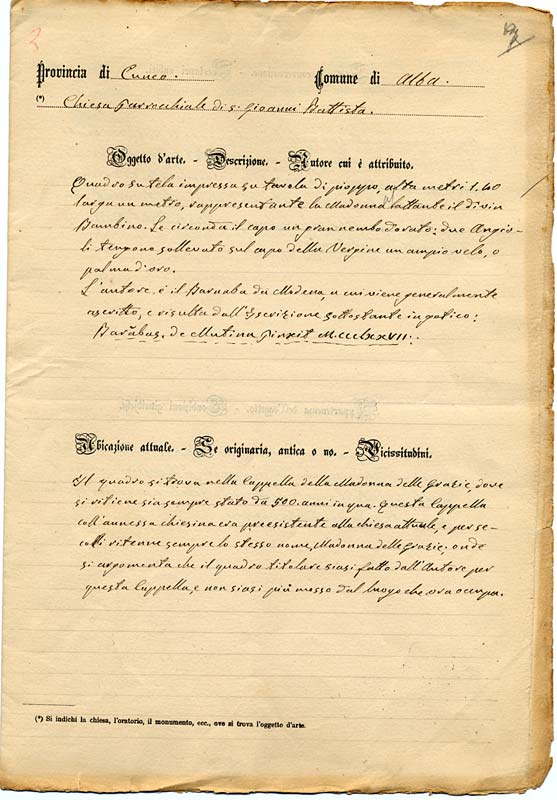 2
Provincia di Cuneo. Comune di Alba.
(*) Chiesa parrocchiale di S. Gioanni Battista.
Oggetto d'arte. - Descrizione. - Autore cui è attribuito.
Quadro su tela impressa su tavola di pioppo, alta metri 1.40
larga un metro, rappresentante la Madonna lattante il divin
Bambino. Le circonda il capo un gran nembo dorato: due Angio-
li tengono sollevato sul capo della Vergine un ampio velo, o
palma d'oro.
L'autore è il Barnaba da Modena, a cui viene generalmente
ascritto, e risulta dall'Iscrizione sottostante in gotico:
Barābas de Mutina pinxit MCCCLXXVII.
Ubicazione attuale. - Se originaria, antica o no. - Vicissitudini.
Il quadro si trova nella Cappella della Madonna delle Grazie, dove
si ritiene sia sempre stato da 500 anni in qua. Questa Cappella
coll'annessa chiesina era preesistente alla chiesa attuale, e per se-
coli ritenne sempre lo stesso nome, Madonna delle Grazie: onde
si argomenta che il quadro titolare siasi fatto dall'Autore per
questa Cappella, e non siasi più mosso dal luogo che ora occupa.
(*) Si indichi la chiesa, l'oratorio, il monumento, ecc., ove si trova l'oggetto d'arte.